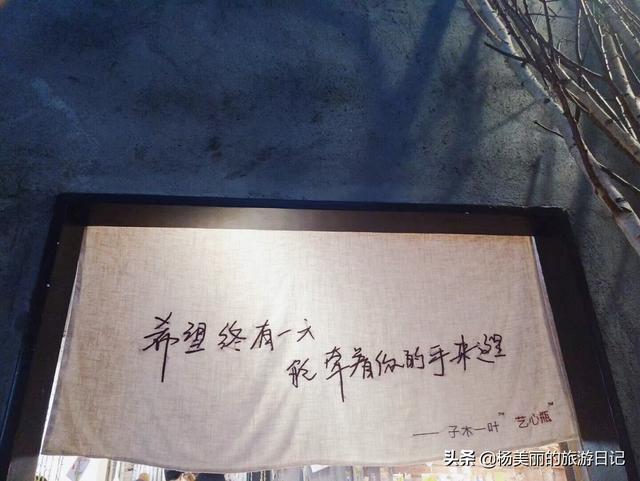 希望终有一天
能牵着你的手来这里
—— 子木一叶™ 艺心瓶™
头条 @杨美丽的旅游日记